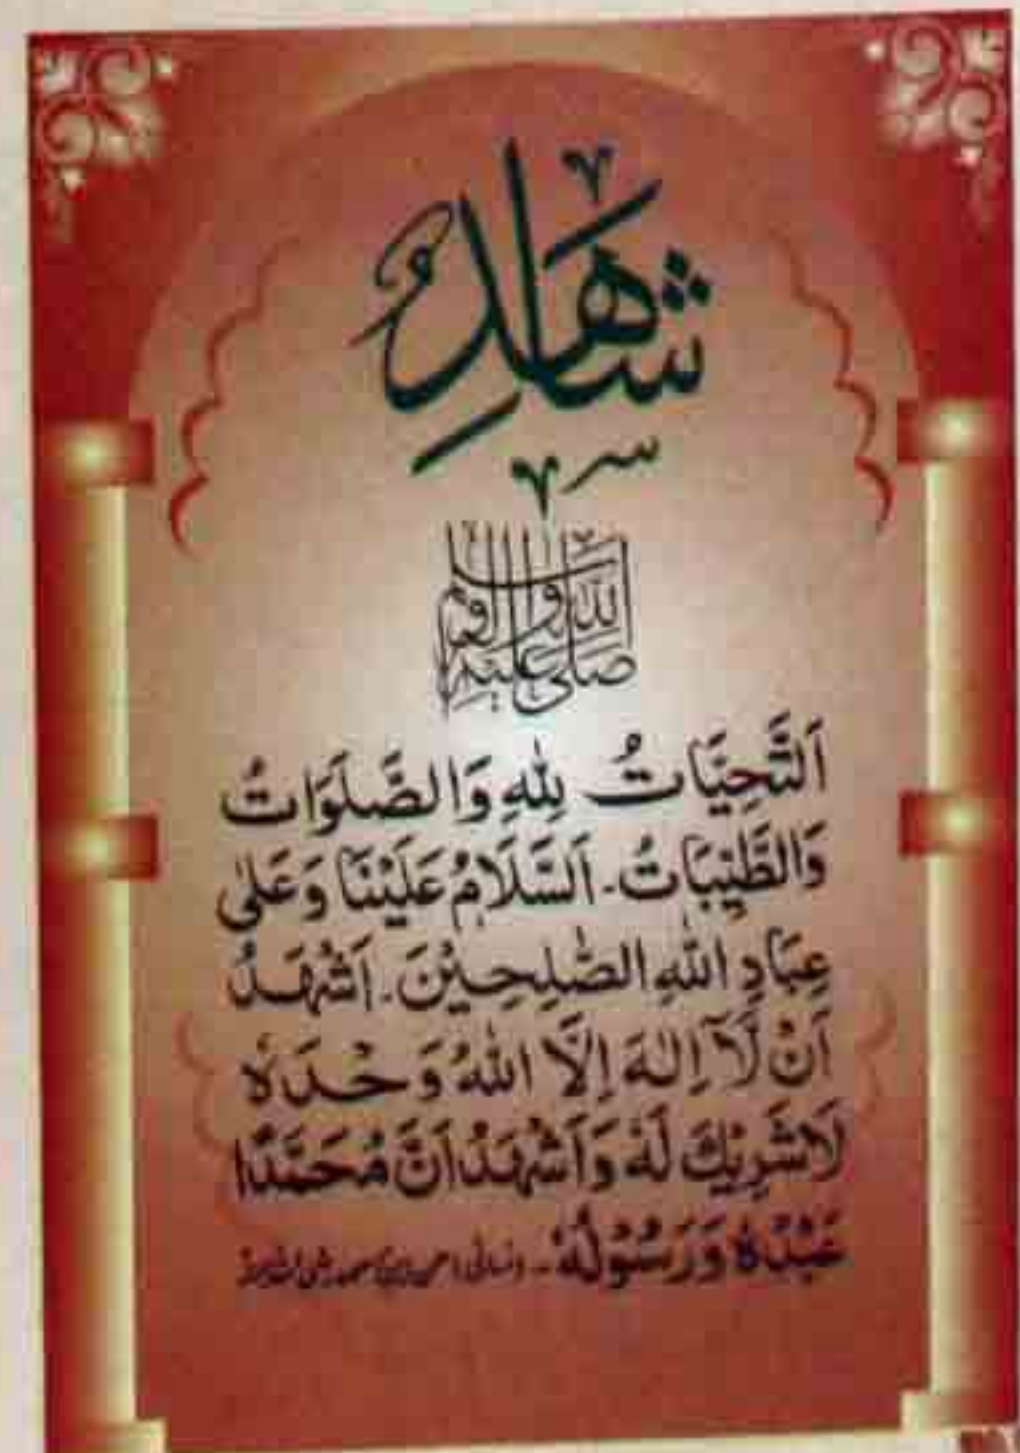 شَاهِدٌ
صلى الله عليه وآله وسلم
اَلتَّحِيَّاتُ لِلّٰهِ وَالصَّلَوَاتُ
وَالطَّيِّبَاتُ۔ اَلسَّلَامُ عَلَيْنَا وَعَلٰى
عِبَادِ اللّٰهِ الصّٰلِحِيْنَ۔ اَشْهَدُ
اَنْ لَّآ اِلٰهَ اِلَّا اللّٰهُ وَحْدَهٗ
لَاشَرِيْكَ لَهٗ وَاَشْهَدُ اَنَّ مُحَمَّدًا
عَبْدُهٗ وَرَسُوْلُهٗ۔